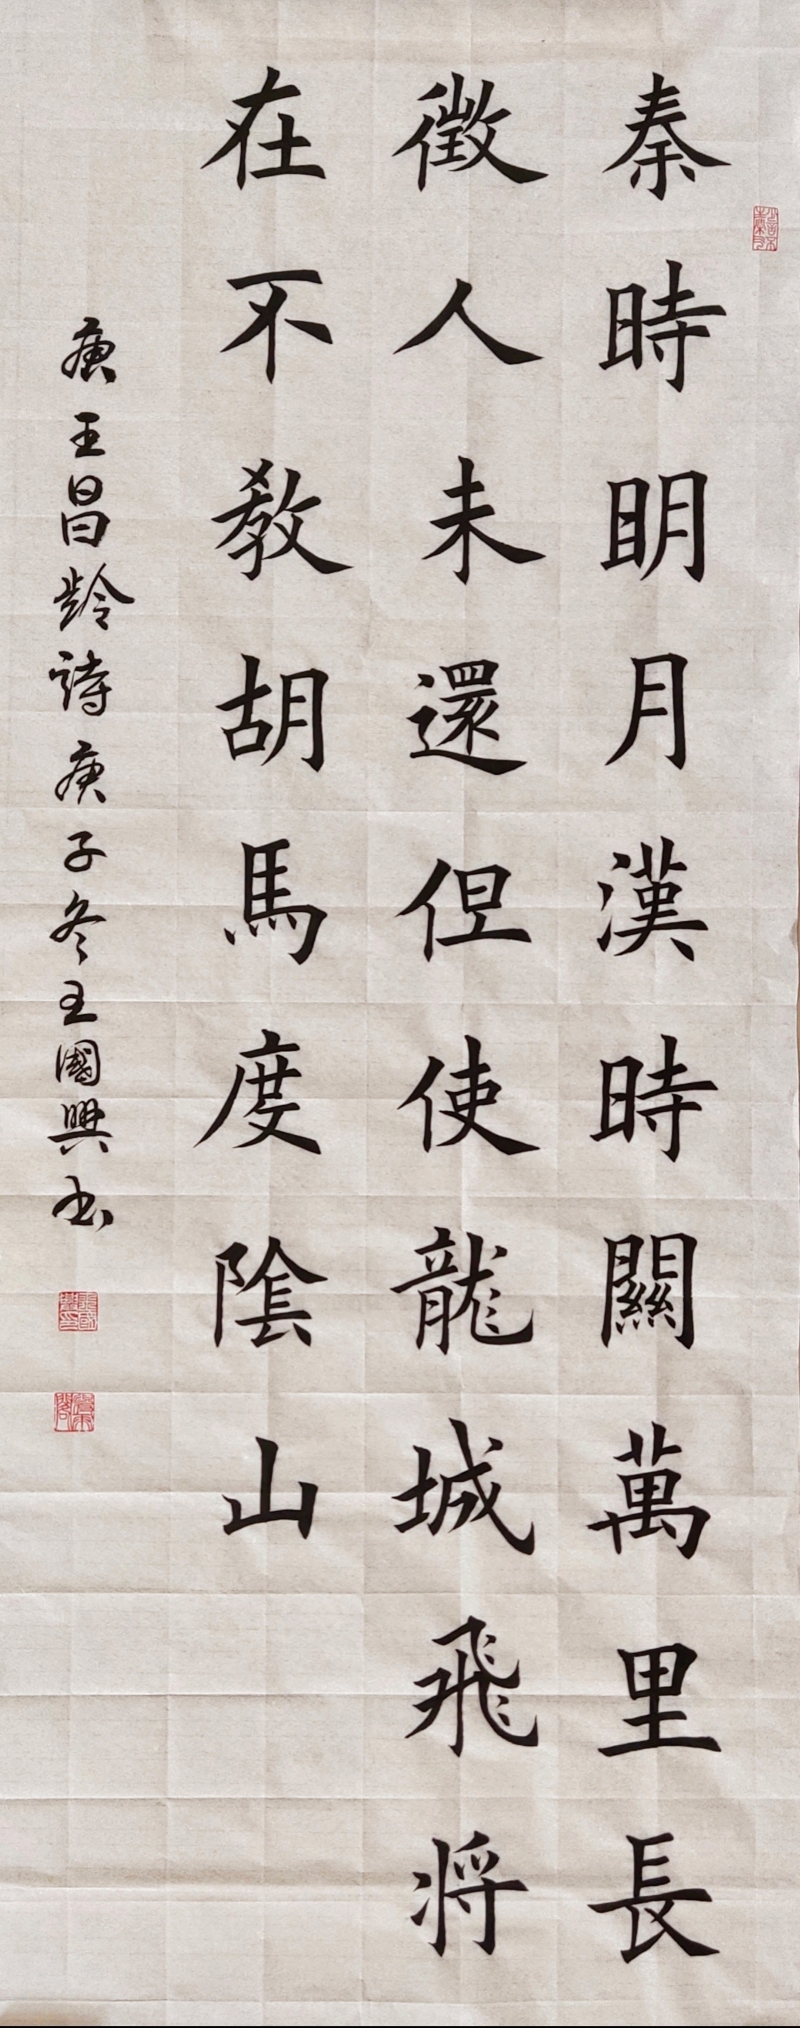 秦時明月漢時關萬里長
徵人未還但使龍城飛將
在不教胡馬度陰山
唐王昌齡詩庚子冬王國興书